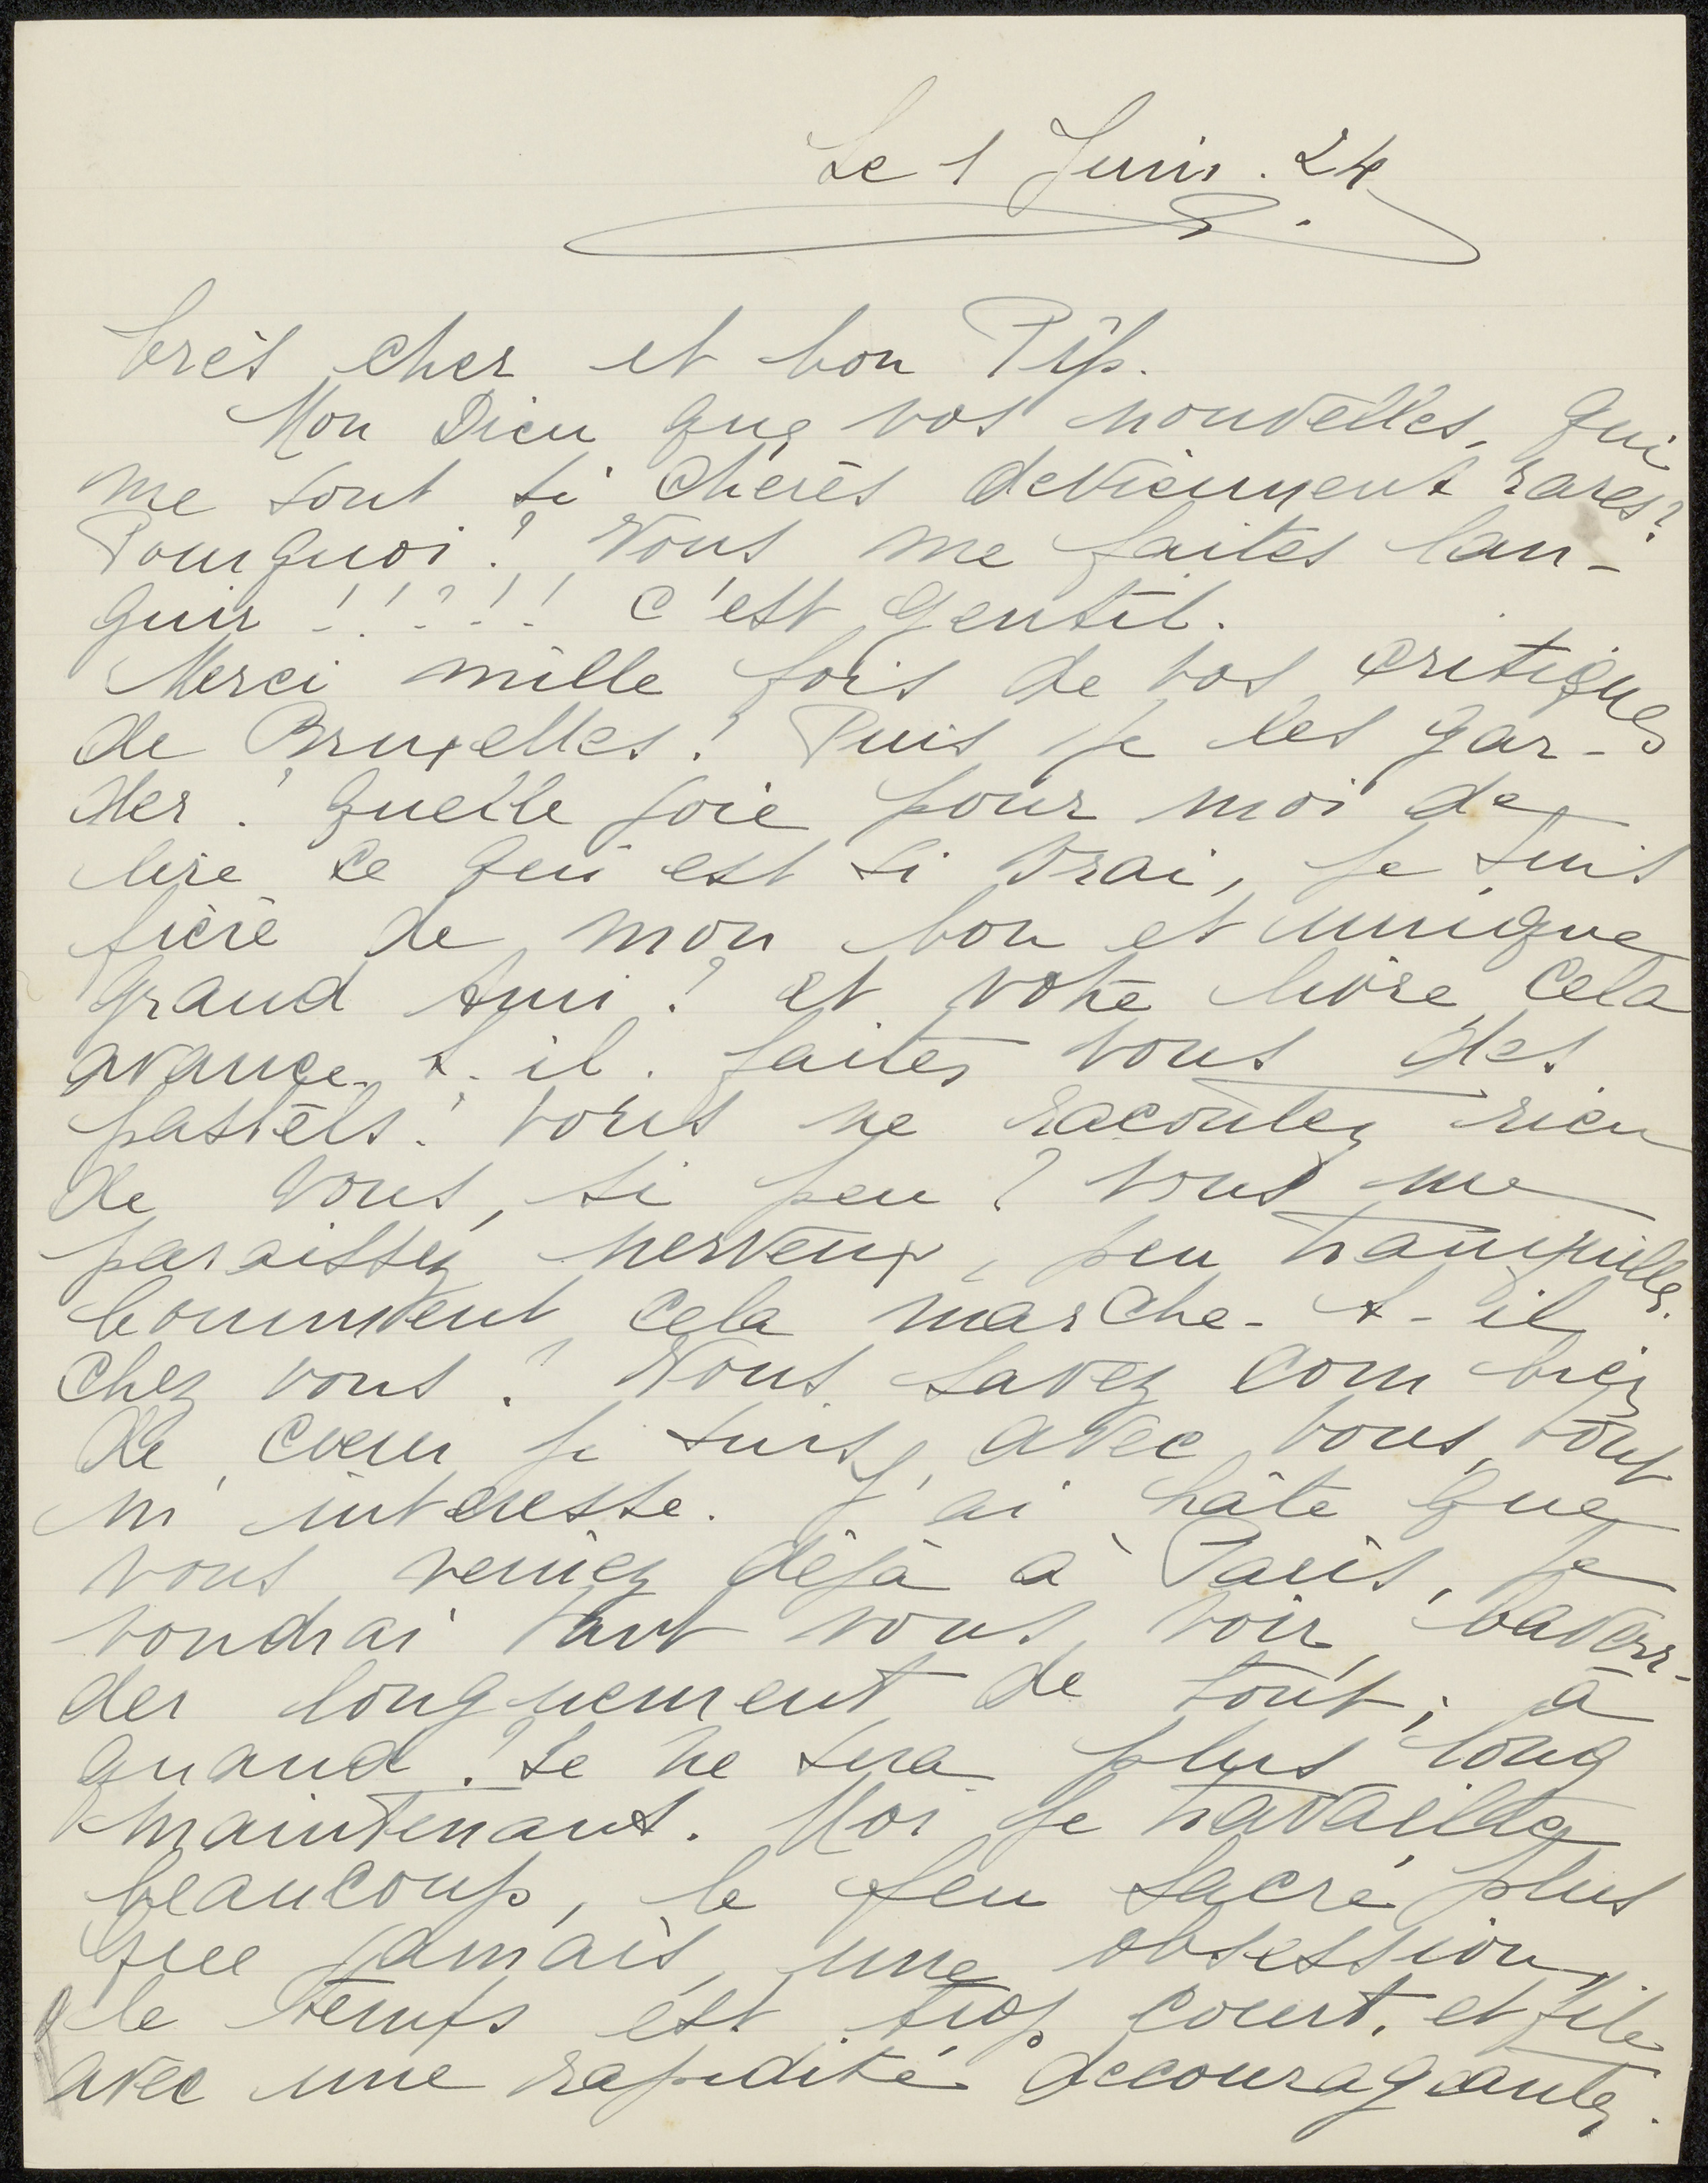 Le 1 Juin. 24
très cher et bon Pip.
Mon Dieu que vos nouvelles, qui
me sont si chères deviennent rares?
Pourquoi? Vous me faites lan-
guir !!?!! c'est gentil.
Merci mille fois de vos critiques
de Bruxelles! Puis je les gar-
der? quelle joie pour moi de
lire ce qui est si vrai, je suis
fière de mon bon et unique
grand Ami! et votre livre cela
avance-t-il. faites vous des
pastels? vous ne racontez rien
de vous, si peu? vous me
paraissez nerveux, peu tranquille.
Comment cela marche-t-il
chez vous? Vous savez com bien
de coeur je suis avec vous, tout
m'interesse. J'ai hâte que
vous veniez déjà à Paris, je
voudrai tant vous voir, bavar-
der longuement de tout; à
quand? Ce ne sera plus long
maintenant. Moi je travaille
beaucoup, le feu sacré plus
que jamais, une obsession,
le temps est trop court. et file
avec une rapidité decourageante.